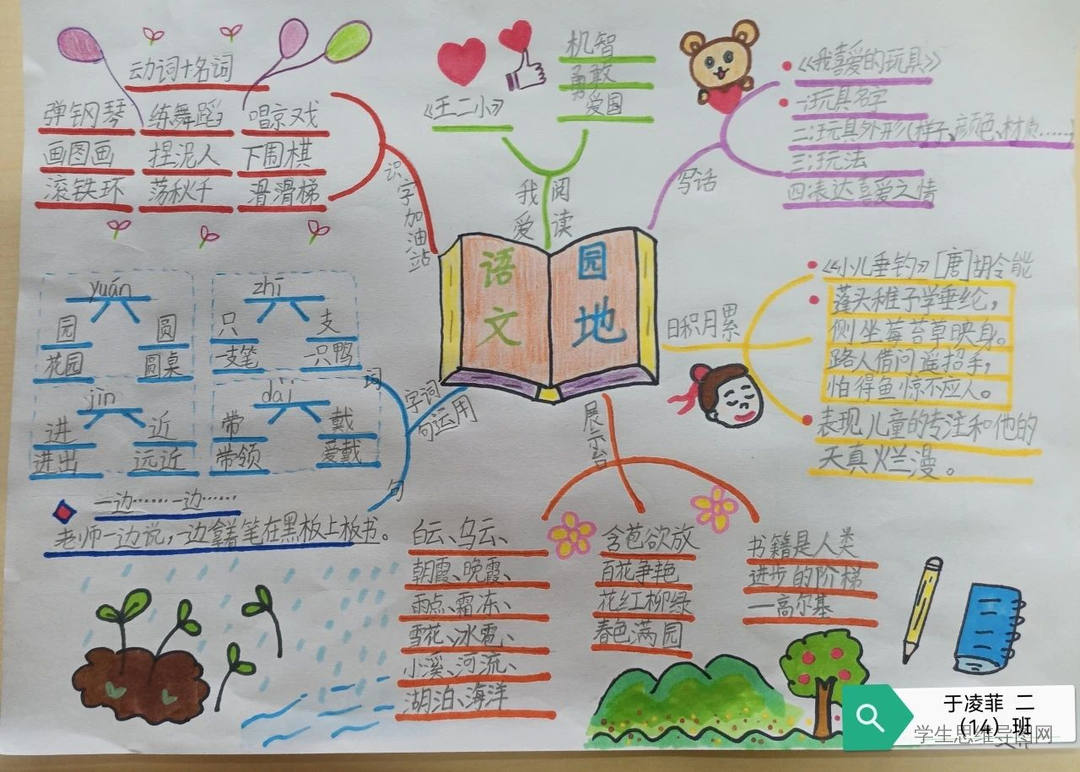 语文
园地
识字加油站
动词+名词
弹钢琴 练舞蹈 唱京戏
画图画 捏泥人 下围棋
滚铁环 荡秋千 滑滑梯
我爱阅读
《王二小》
机智
勇敢
爱国
写话
《我喜爱的玩具》
一:玩具名字
二:玩具外形(样子、颜色、材质……)
三:玩法
四:表达喜爱之情
日积月累
《小儿垂钓》[唐]胡令能
蓬头稚子学垂纶,
侧坐莓苔草映身。
路人借问遥招手,
怕得鱼惊不应人。
表现儿童的专注和他的
天真烂漫。
字词句运用
词
yuán
园 圆
花园 圆桌
zhī
只 支
一支笔 一只鸭
jìn
进 近
进出 远近
dài
带 戴
带领 爱戴
句
一边……一边……
老师一边说,一边拿着笔在黑板上板书。
展示台
白云、乌云、
朝霞、晚霞、
雨点、霜冻、
雪花、冰雹、
小溪、河流、
湖泊、海洋
含苞欲放
百花争艳
花红柳绿
春色满园
书籍是人类
进步的阶梯
—高尔基
于凌菲 二
(14)班
学生思维导图网